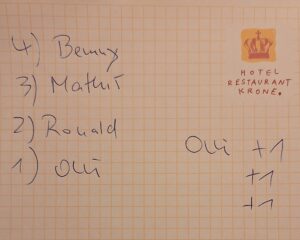 4) Benny
3) Mathis
2) Ronald
1) Olli
HOTEL
RESTAURANT
KRONE.
Olli +1
+1
+1